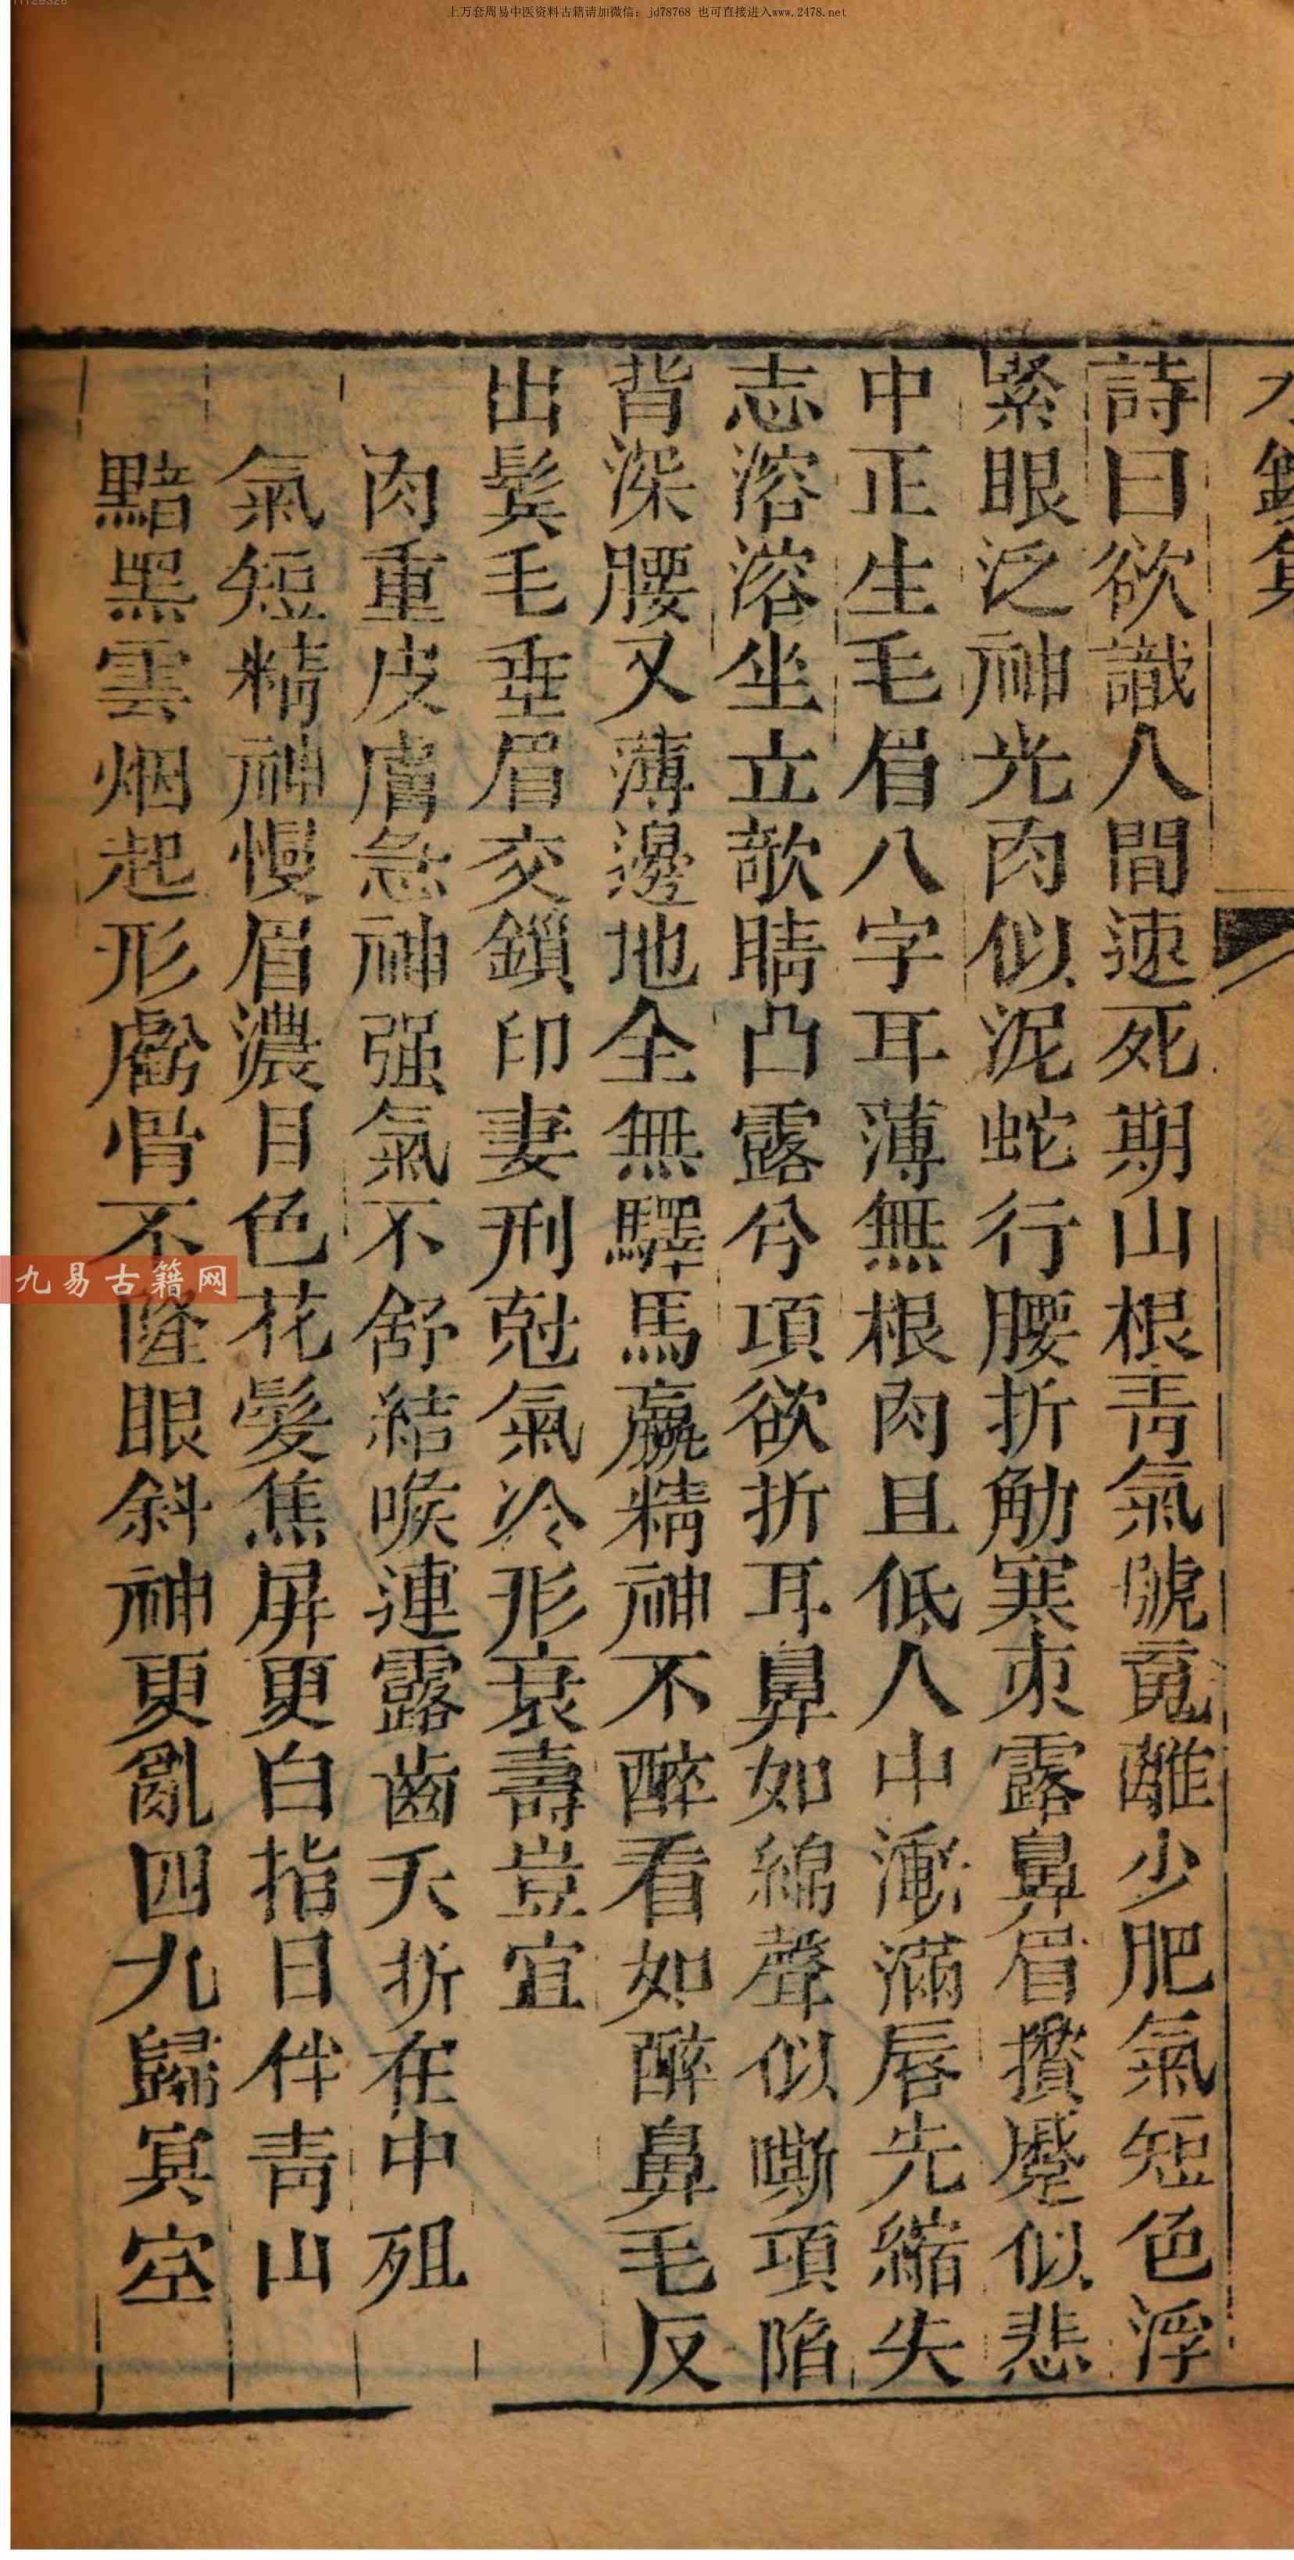 上万套周易中医资料古籍请加微信：jd78768 也可直接进入www.2478.net
詩曰欲識人間速死期山根青氣號䰟離少肥氣短色浮
緊眼泛神光肉似泥蛇行腰折觔寒束露鼻眉攅蹙似悲
中正生毛眉八字耳薄無根肉且低人中漸滿唇先縮失
志溶溶坐立欹睛凸露兮項欲折耳鼻如綿聲似嘶項陷
背深腰又薄邊地全無驛馬羸精神不醉看如醉鼻毛反
出鬂毛垂眉交鎖印妻刑尅氣冷形衰壽豈宜
肉重皮膚急神强氣不舒結喉連露齒夭折在中殂
氣短精神慢眉濃目色花髮焦屏更白指日伴青山
黯黑雲烟起形虧骨不隆眼斜神更亂四九歸冥空
九易古籍网